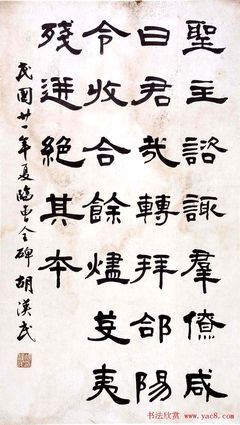 聖主諮諏羣僚咸
曰君哉轉拜郃陽
令收合餘燼芟夷
殘迸絕其本
民國廿一年夏臨曹全碑 胡漢民
书法欣赏 www.yac8.com